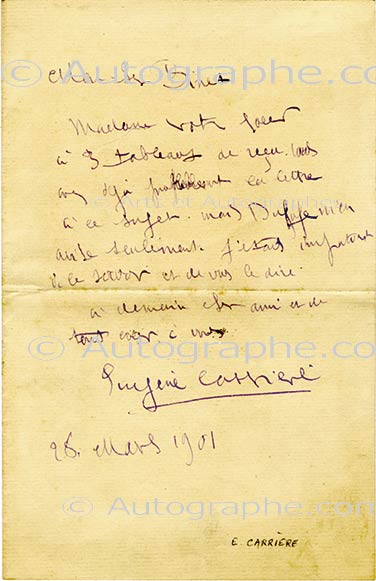 Mon cher Dinet
Madame votre Soeur
à 3 tableaux de reçu. Vous
avez déjà probablement la lettre
à ce sujet. mais Dufaye m'en
avise seulement. J'étais impatient
de le savoir et de vous le dire.
à demain cher ami et de
tout coeur à vous
Eugène Carrière
28. Mars 1901
E. CARRIÈRE
© Autographe.com
© Arts et Autographes
© Autographe.com
© Autographe.com